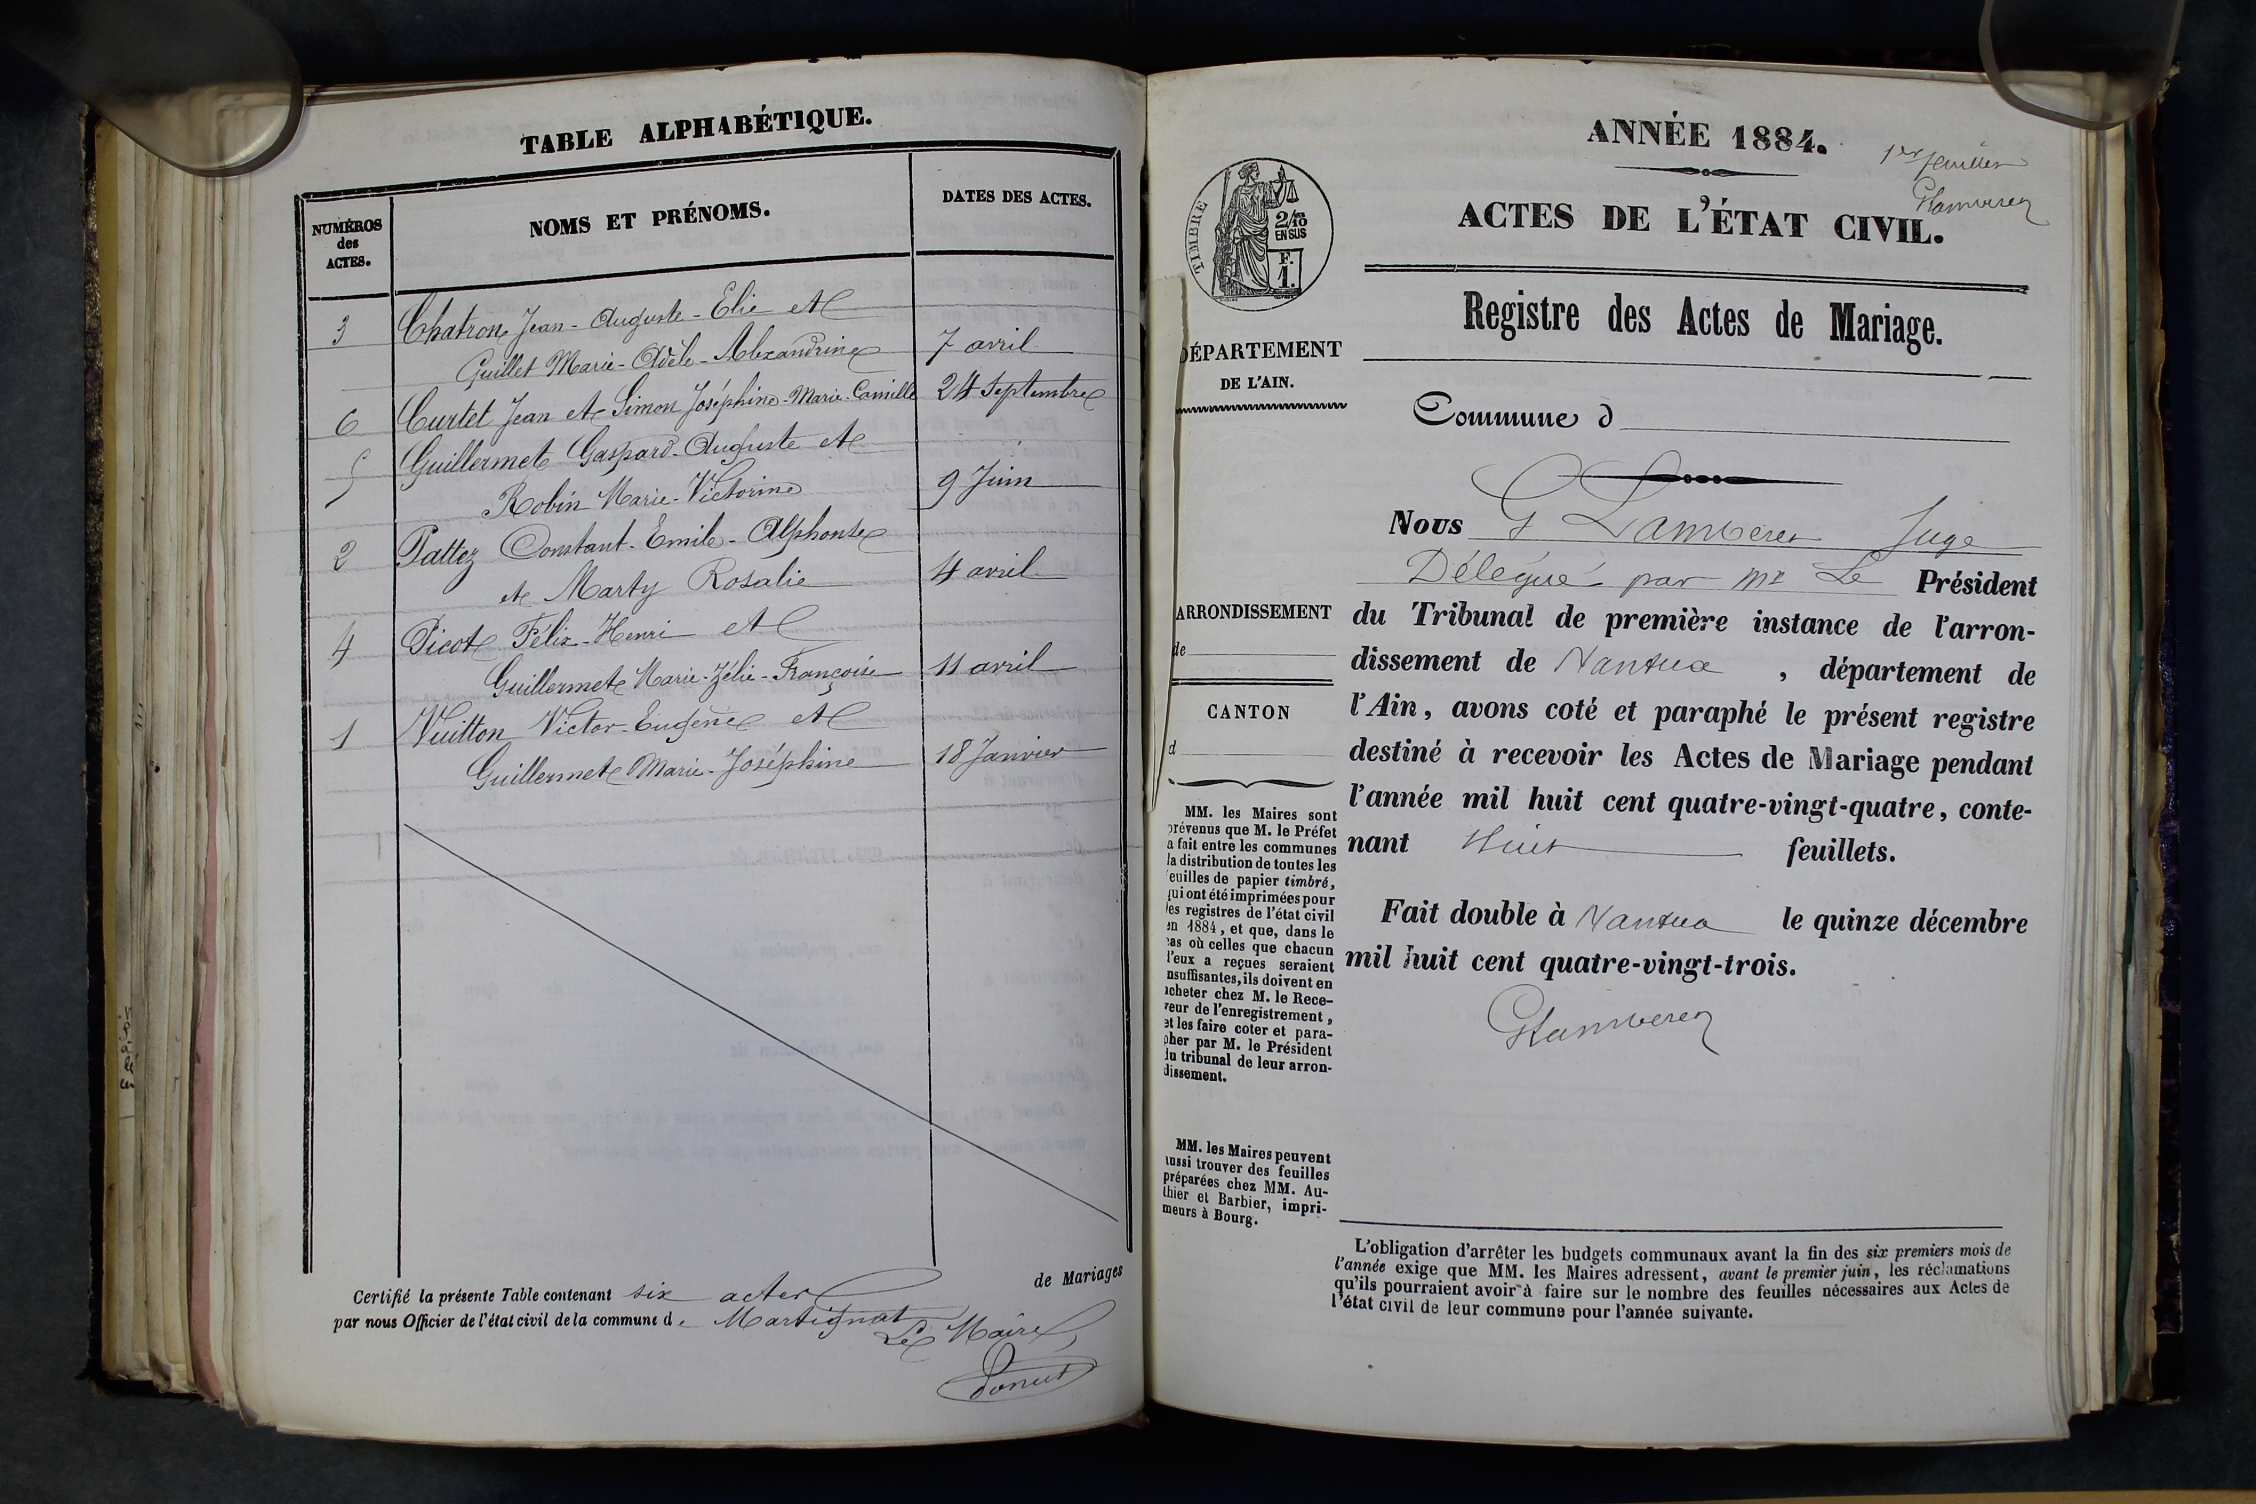 TABLE ALPHABÉTIQUE.
NUMÉROS
des
ACTES.
NOMS ET PRÉNOMS.
DATES DES ACTES.
3 Chatron Jean-Auguste-Elie et
Guillet Marie-Adèle-Alexandrine 7 avril
6 Curtet Jean et Simon Joséphine-Marie-Camille 24 Septembre
5 Guillermet Gaspard-Auguste et
Robin Marie-Victorine 9 Juin
2 Pattez Constant-Emile-Alphonse
et Marty Rosalie 4 avril
4 Picot Félix-Henri et
Guillermet Marie-Zélie-Françoise 11 avril
1 Vuitton Victor-Eugène et
Guillermet Marie-Joséphine 18 Janvier
Certifié la présente Table contenant six actes de Mariages
par nous Officier de l'état civil de la commune d e Martignat
Le Maire
ANNÉE 1884.
1er feuillet
ACTES DE L'ÉTAT CIVIL.
TIMBRE
2/10
EN SUS
F.
1.
Registre des Actes de Mariage.
DÉPARTEMENT
DE L'AIN.
Commune d
Nous G Lamberet Juge
Délégué par Mr Le Président
du Tribunal de première instance de l'arron-
dissement de Nantua , département de
l'Ain, avons coté et paraphé le présent registre
destiné à recevoir les Actes de Mariage pendant
l'année mil huit cent quatre-vingt-quatre, conte-
nant Huit feuillets.
Fait double à Nantua le quinze décembre
mil huit cent quatre-vingt-trois.
GLamberet
ARRONDISSEMENT
de
CANTON
d
MM. les Maires sont
prévenus que M. le Préfet
a fait entre les communes
la distribution de toutes les
feuilles de papier timbré,
qui ont été imprimées pour
les registres de l'état civil
en 1884, et que, dans le
cas où celles que chacun
d'eux a reçues seraient
insuffisantes, ils doivent en
acheter chez M. le Rece-
veur de l'enregistrement,
et les faire coter et para-
pher par M. le Président
du tribunal de leur arron-
dissement.
MM. les Maires peuvent
aussi trouver des feuilles
préparées chez MM. Au-
thier et Barbier, impri-
meurs à Bourg.
L'obligation d'arrêter les budgets communaux avant la fin des six premiers mois de
l'année exige que MM. les Maires adressent, avant le premier juin, les réclamations
qu'ils pourraient avoir à faire sur le nombre des feuilles nécessaires aux Actes de
l'état civil de leur commune pour l'année suivante.